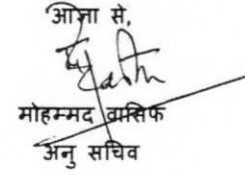 आज्ञा से,
मोहम्मद वासिफ
अनु सचिव